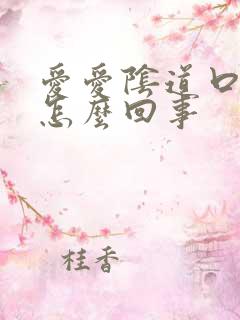 愛愛陰道口
怎麼回事
桂香